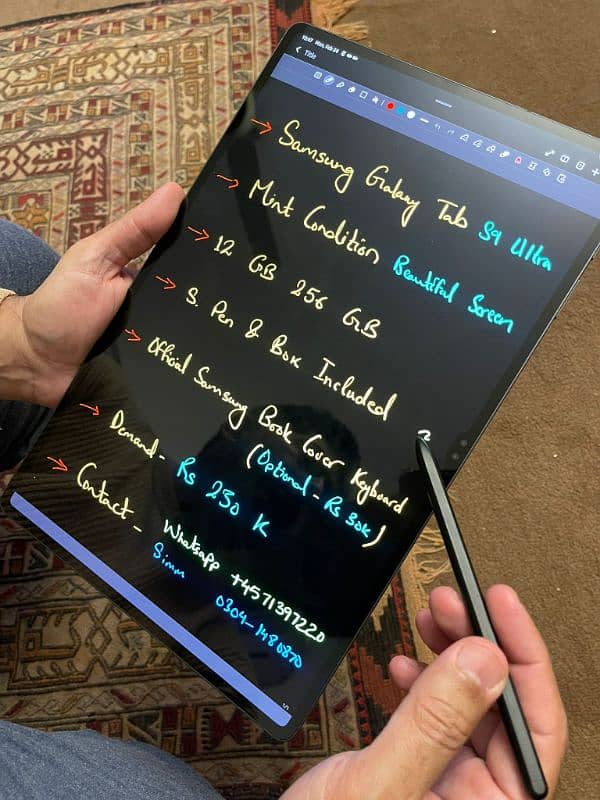 10:47 Mon, Feb 24
Title
→ Samsung Galaxy Tab S9 Ultra
→ Mint Condition Beautiful Screen
→ 12 GB 256 GB
→ S. Pen & Box Included
→ Official Samsung Book Cover Keyboard
(Optional - Rs 30K)
→ Demand - Rs 230 K
→ Contact - Whatsapp +4571397220
Simm 0304-1480870